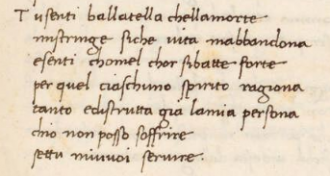 Tu senti ballatella chellamorte
mistringe siche vita mabbandona
esenti chomel chor sibatte forte
per quel ciaschuno spirito ragiona
tanto edistrutta gia lamia persona
chio non posso soffrire
settu mivuoi servire.